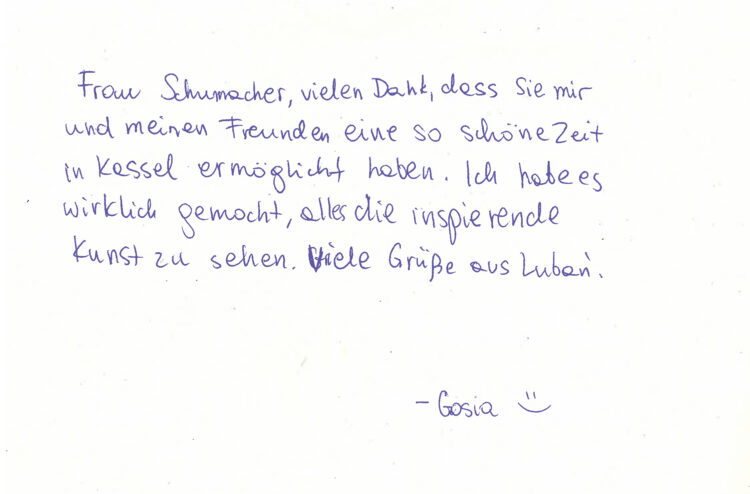 Frau Schumacher, vielen Dank, dass Sie mir
und meinen Freunden eine so schöne Zeit
in Kassel ermöglicht haben. Ich habe es
wirklich gemocht, alles die inspierende
Kunst zu sehen. Viele Grüße aus Lubań.
- Gosia